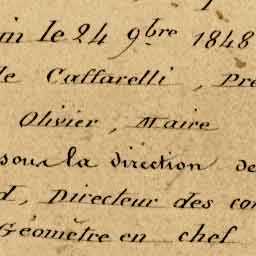 in le 24 9bre 1848
de Caffarelli, Pré
Olivier, Maire
sous la direction de
d, Directeur des con
Géomètre en chef